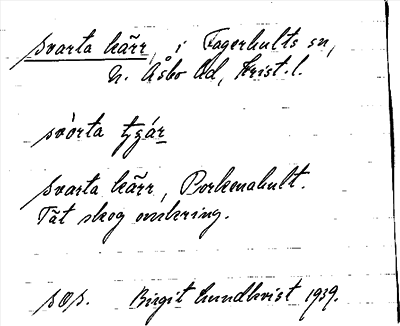 svarta kärr, i Fagerhults sn,
N. Åsbo hd, Krist. l.
svarta kärr, Borkenahult.
Tät skog omkring.
Birgit Lundkvist 1939.